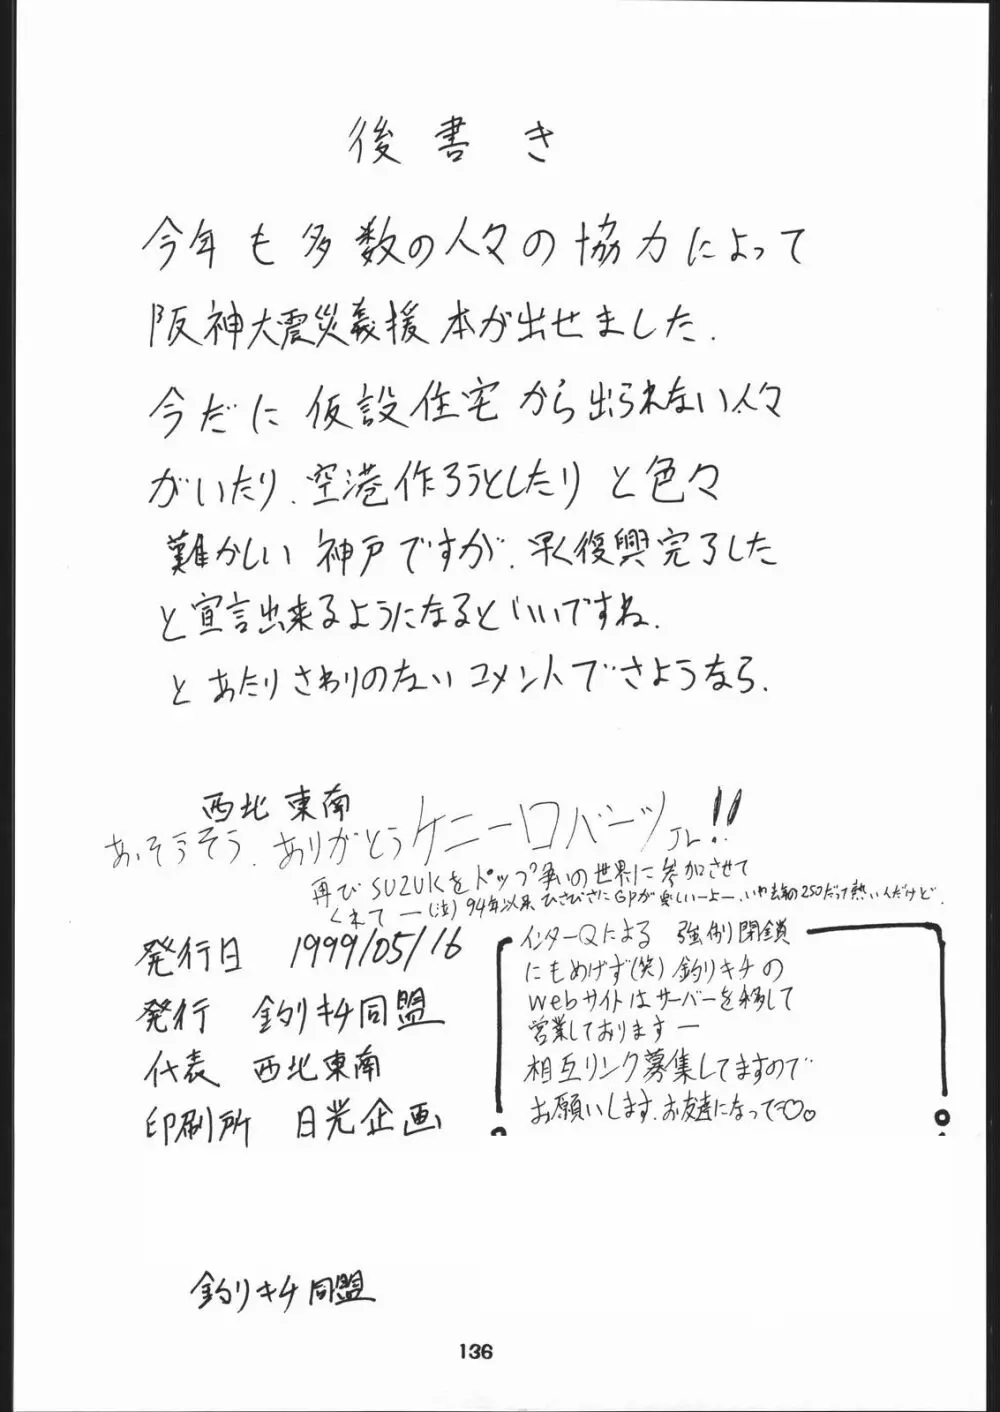 後書き
今年も多数の人々の協力によって
阪神大震災義援本が出せました.
今だに仮設住宅から出られない人々
がいたり.空港作ろうとしたりと色々
難かしい神戸ですが.早く復興完了した
と宣言出来るようになるといいですね.
とあたりさわりのないコメントでさようなら.
西北東南
あ,そうそう.ありがとうケニーロバーツJr!!
再びSUZUKIをトップ争いの世界に参加させて
くれてー(泣)94年以来ひさびさにGPが楽しいーよー.いや去年の250だって熱いんだけど.
発行日 1999/05/16
発行 釣りキチ同盟
代表 西北東南
印刷所 日光企画
インターQによる 強制閉鎖
にもめげず(笑)釣りキチの
webサイトはサーバーを移して
営業しておりますー
相互リンク募集してますので
お願いします.お友達になって♡♡
釣りキチ同盟
136